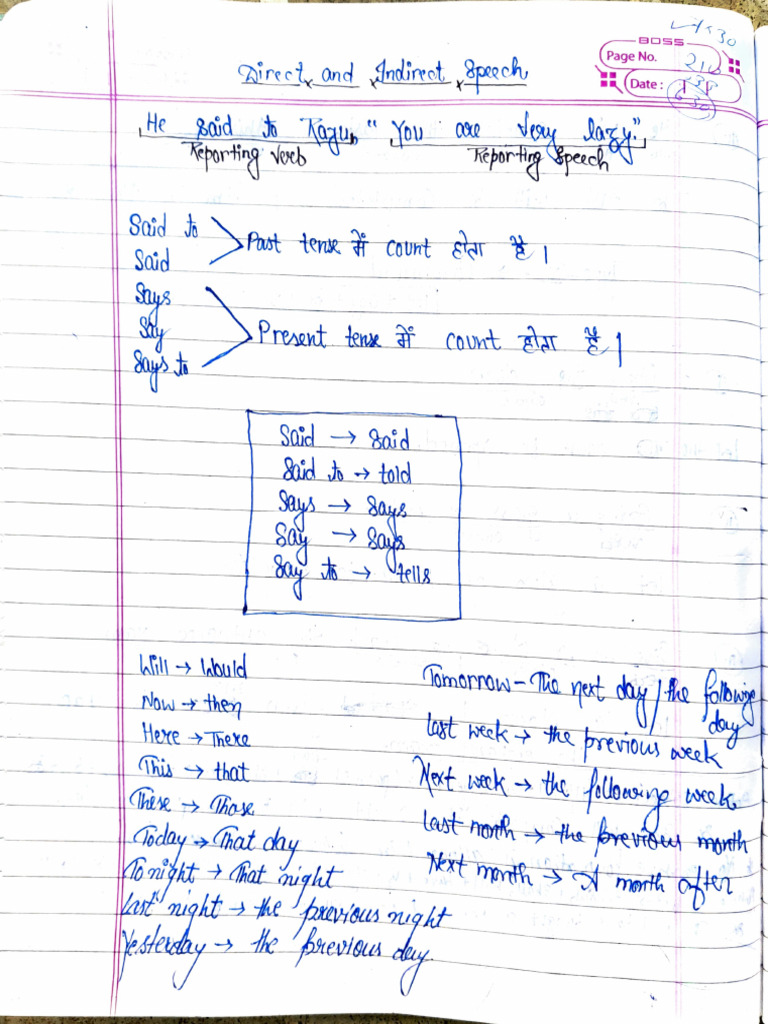 BOSS
Page No.
Date:
Direct and Indirect Speech
He said to Raju, "You are very lazy."
Reporting verb Reporting Speech
Said to
Said
Past tense में count होता है।
Says
Say
Says to
Present tense में count होता है।
Said → Said
Said to → told
Says → Says
Say → Says
Say to → tells
Will → Would
Now → then
Here → There
This → that
These → Those
Today → That day
Tonight → That night
Last night → the previous night
Yesterday → the previous day.
Tomorrow – The next day / the following
day
Last week → the previous week
Next week → the following week
Last month → the previous month
Next month → A month after